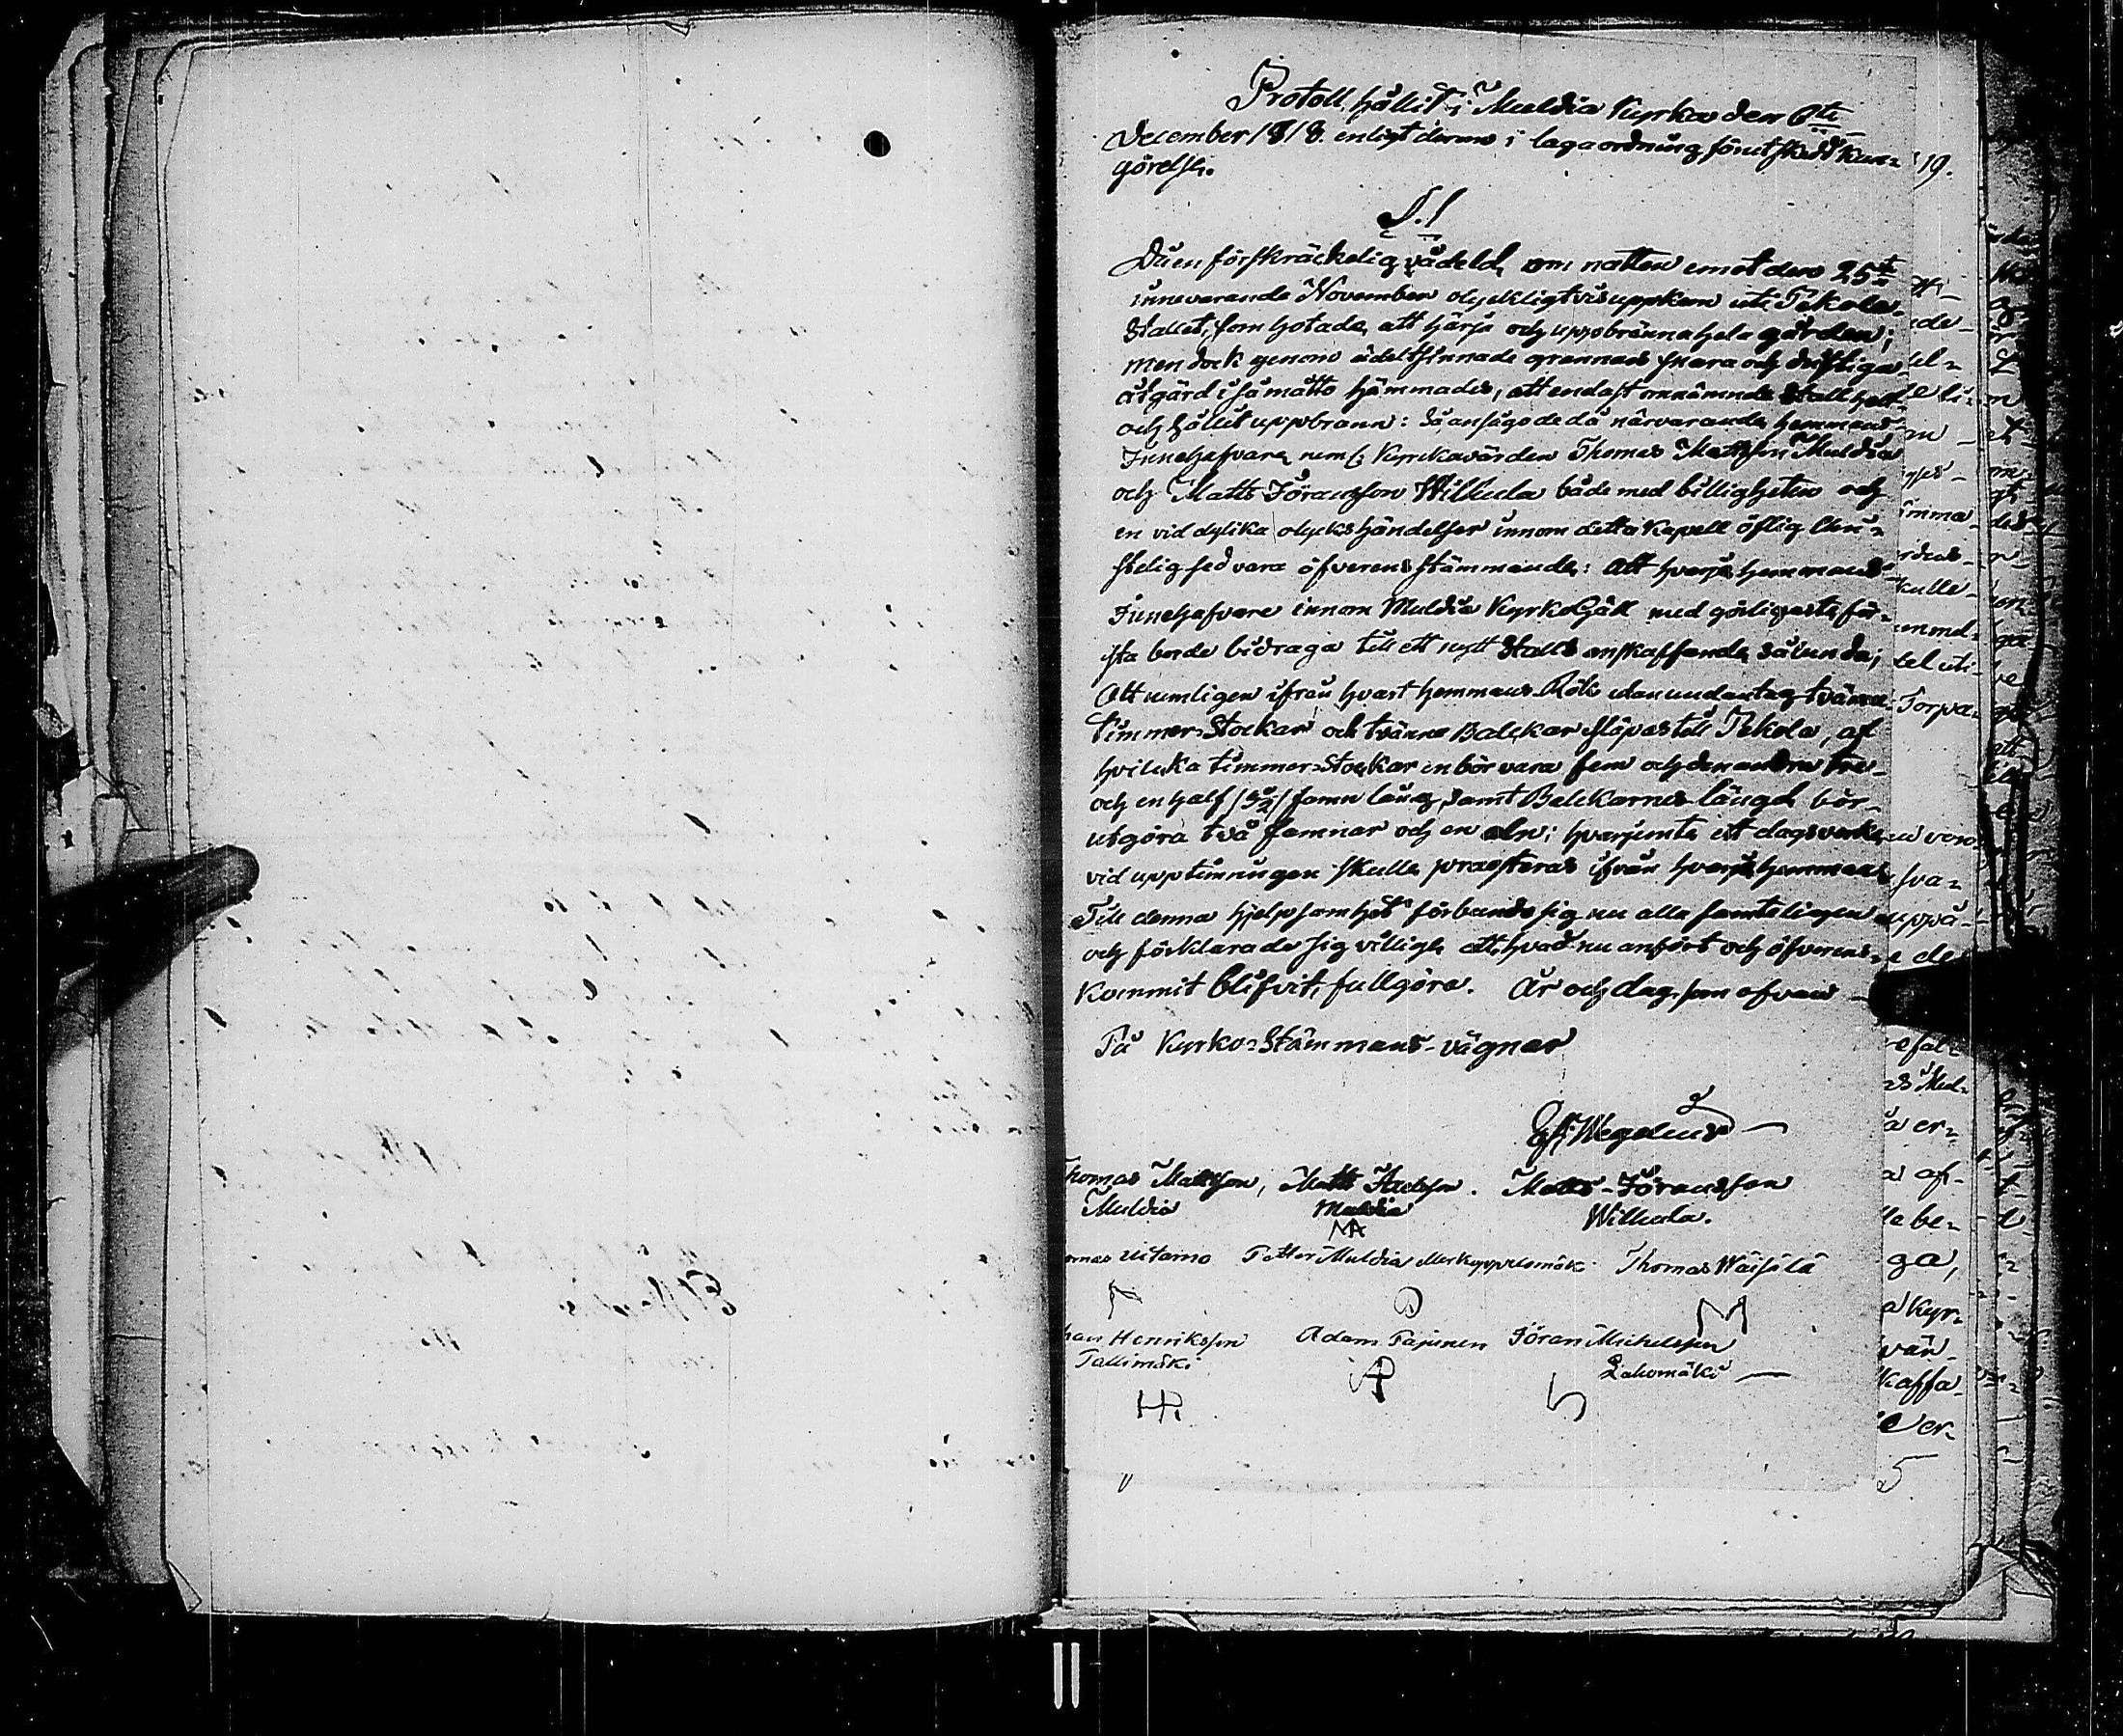 Protoll, hållit i Muldia Kyrka den 6te
December 1818. enligt derom i laga ordning förut skedd kun-
görelse.
19.
§.1
Då en förskräckelig vådeld, om natten emot den 25te
innevarande November olyckligtvis uppkom uti Pekola
Stallet, som hotade, att härja och uppbränna hela gården;
men dock genom ädeltsinnade grannars snara och driftiga
åtgärd i så måtto hämmades, att endast omnämnde Stall helt
och hållit uppbrann: Så ansågo de då närvarande hemmans
Innehafvare, neml: Kyrckovärden Thomas Mattsson Muldia
och Matts Jöransson Wilkula både med billigheten och
en vid dylika olyckshändelser innom detta Kapell öflig Chri-
stelig sed vara öfverensstämmande: Att hvarje hemmans
Innehafvare innom Muldia Kyrko Gäll med görligaste för-
sta borde bidraga till ett nytt Stalls anskaffande sålunda;
Att nemligen ifrån hvart hemmans Rök utan undantag tvänne
timmer-Stockar och tvänne Balckar släpas till Pekola, af
hvilcka timmer-Stockar en bör vara fem och den andra tre
och en half /3½/ famn lång, samt Balckarnes längd bör
utgöra två famnar och en aln; hvarjemte ett dagsverke
vid upptimringen skulle praesteras ifrån hvarje hemman
Till denna hjelpsamhet förbundo sig nu alla samteligen
och förklarade sig villige, att, hvad nu anfört och öfverens-
kommit blifvit, fullgöra. År och dag som ofvan
På Kyrko-Stämmans vägnar
Wegelius
Thomas Mattsson, Matts . Matts Jöransson
Muldia Muldia Wilkula.
Uitamo Petter Muldia Thomas Wäisälä
Henriksson Adam Pajunen Jöran Michelsson
Tallimäki Lahomäki